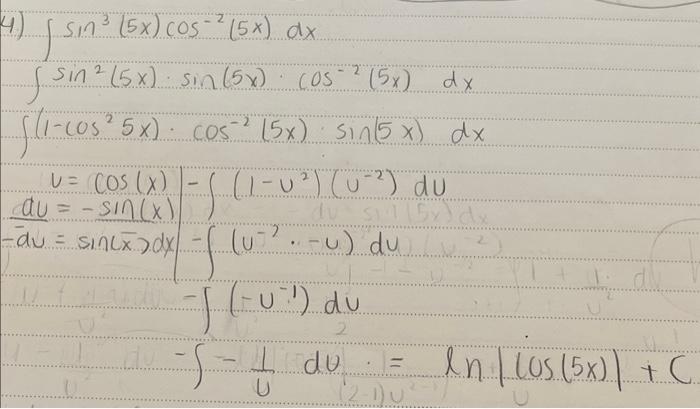 4.) ∫ sin³(5x) cos⁻²(5x) dx
∫ sin²(5x) · sin(5x) · cos⁻²(5x) dx
∫(1-cos² 5x) · cos⁻²(5x) · sin(5x) dx
u = cos(x) | -∫ (1-u²)(u⁻²) du
du = -sin(x)
-du = sin(x)dx | -∫ (u⁻² · -u) du
-∫ (-u⁻¹) du
-∫ - 1/u du = ln|cos(5x)| + C